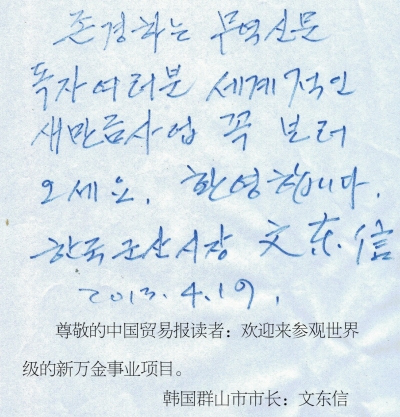 존경하는 무역신문
독자여러분 세계적인
새만금사업 꼭 보러
오세요. 환영합니다.
한국군산시장 文东信
2013.4.19.
尊敬的中国贸易报读者：欢迎来参观世界
级的新万金事业项目。
韩国群山市市长：文东信